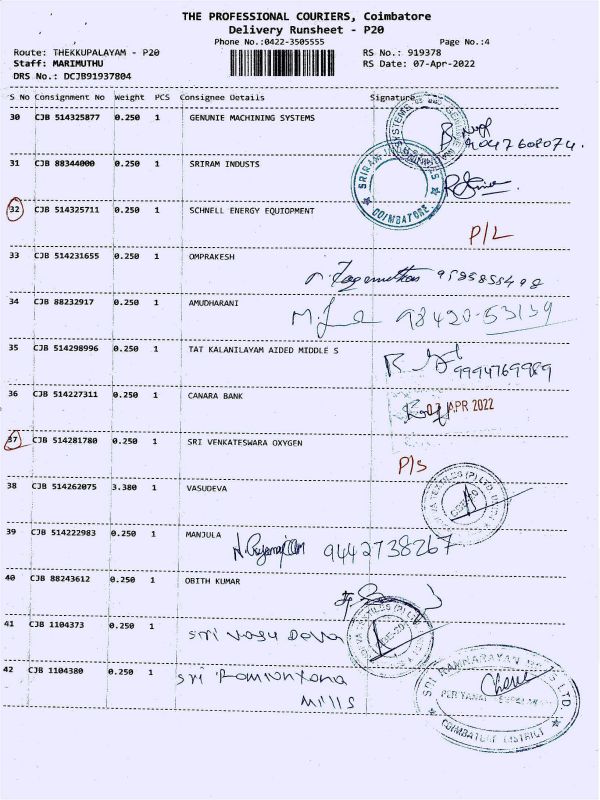 THE PROFESSIONAL COURIERS, Coimbatore
Delivery Runsheet - P20
Phone No.:0422-3505555 Page No.:4
Route: THEKKUPALAYAM - P20 RS No.: 919378
Staff: MARIMUTHU RS Date: 07-Apr-2022
DRS No.: DCJB91937804
S No Consignment No Weight PCS Consignee Details Signature
30 CJB 514325877 0.250 1 GENUNIE MACHINING SYSTEMS
9047608074.
31 CJB 88344000 0.250 1 SRIRAM INDUSTS
SRIRAM COIMBATORE
32 CJB 514325711 0.250 1 SCHNELL ENERGY EQUIOPMENT
P/L
33 CJB 514231655 0.250 1 OMPRAKESH
34 CJB 88232917 0.250 1 AMUDHARANI
98420-53159
35 CJB 514298996 0.250 1 TAT KALANILAYAM AIDED MIDDLE S
9994769989
36 CJB 514227311 0.250 1 CANARA BANK
07 APR 2022
37 CJB 514281780 0.250 1 SRI VENKATESWARA OXYGEN
P/S
38 CJB 514262075 3.380 1 VASUDEVA
39 CJB 514222983 0.250 1 MANJULA
9442738267
40 CJB 88243612 0.250 1 OBITH KUMAR
41 CJB 1104373 0.250 1 Sri Vasu Deva
42 CJB 1104380 0.250 1 Sri
Mills
COIMBATORE DISTRICT